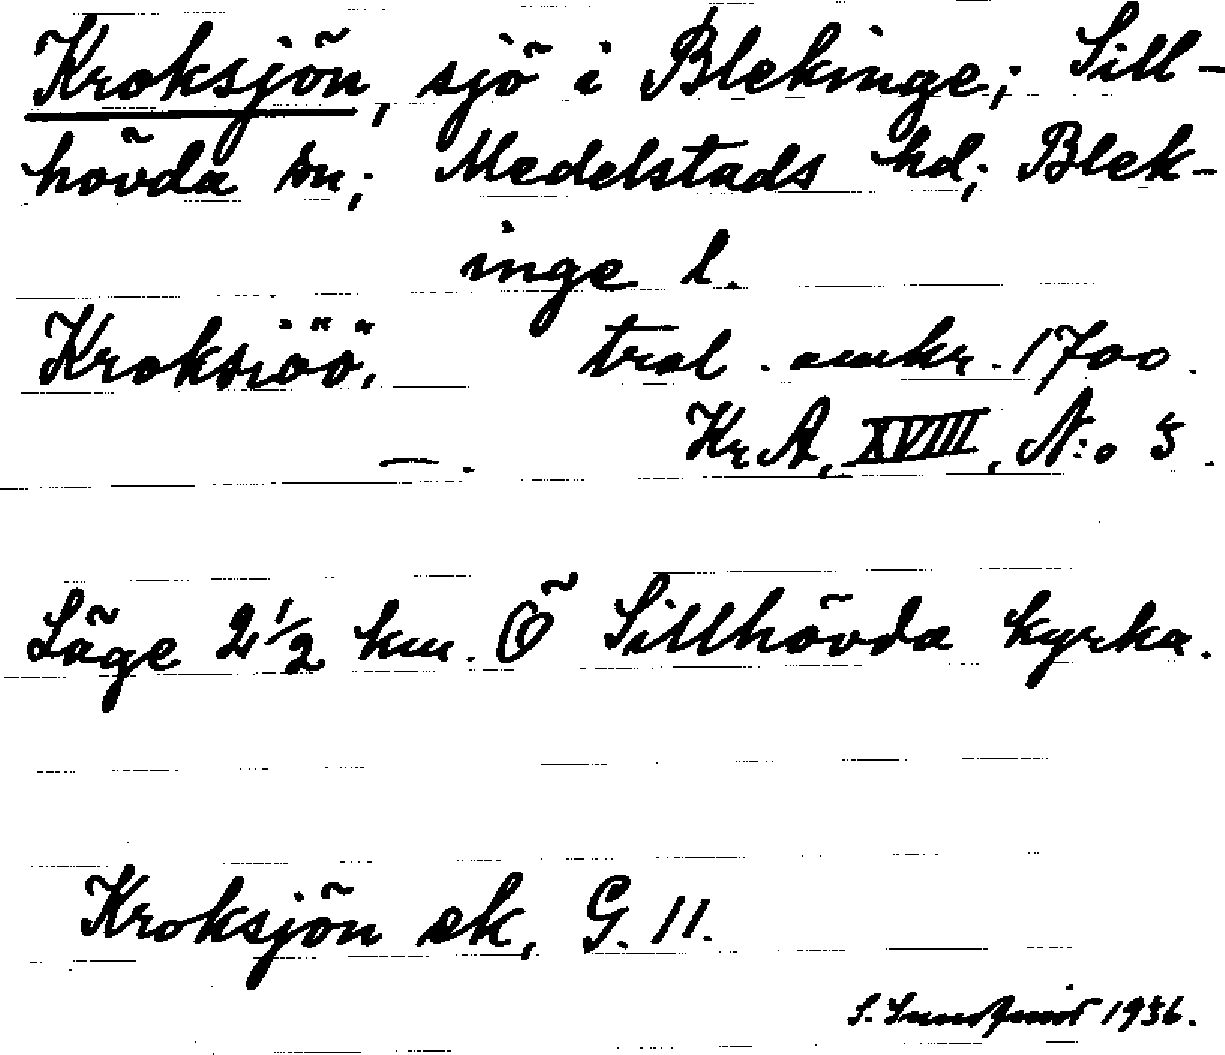 Kroksjön, sjö i Blekinge; Sill-
hövda sn; Medelstads hd; Blek-
inge l.
Kroksiöö, tral. omkr. 1700.
—. Kr.A, XVIII, N:o 3.
Läge 2 1/2 km. Ö Sillhövda kyrka.
Kroksjön ek, G. 11.
S. 1936.